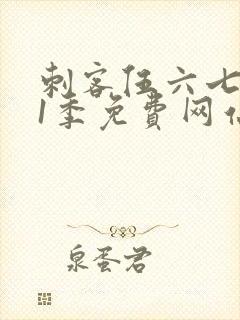 刺客伍六七
1季免费网
泉蛋君